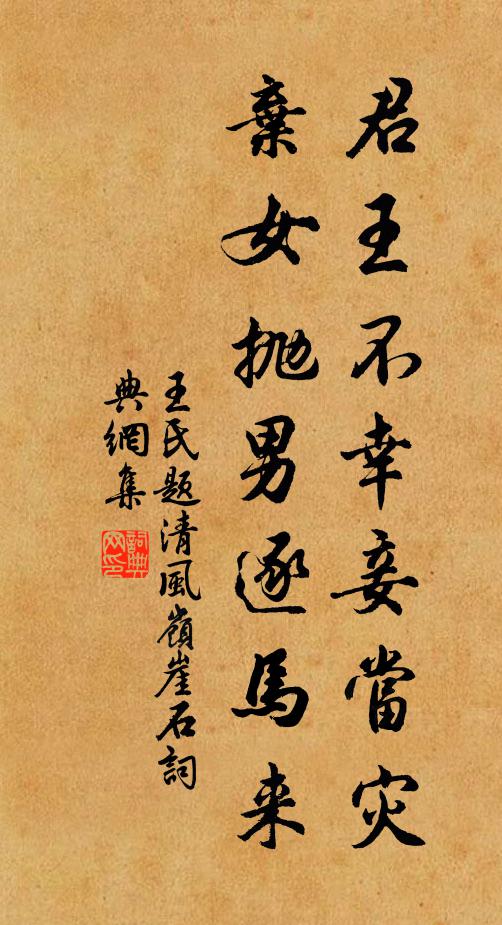 君王不幸妾當灾
棄女抛男逐馬来
王氏题清風嶺崖石詞
典網集
詞典网印